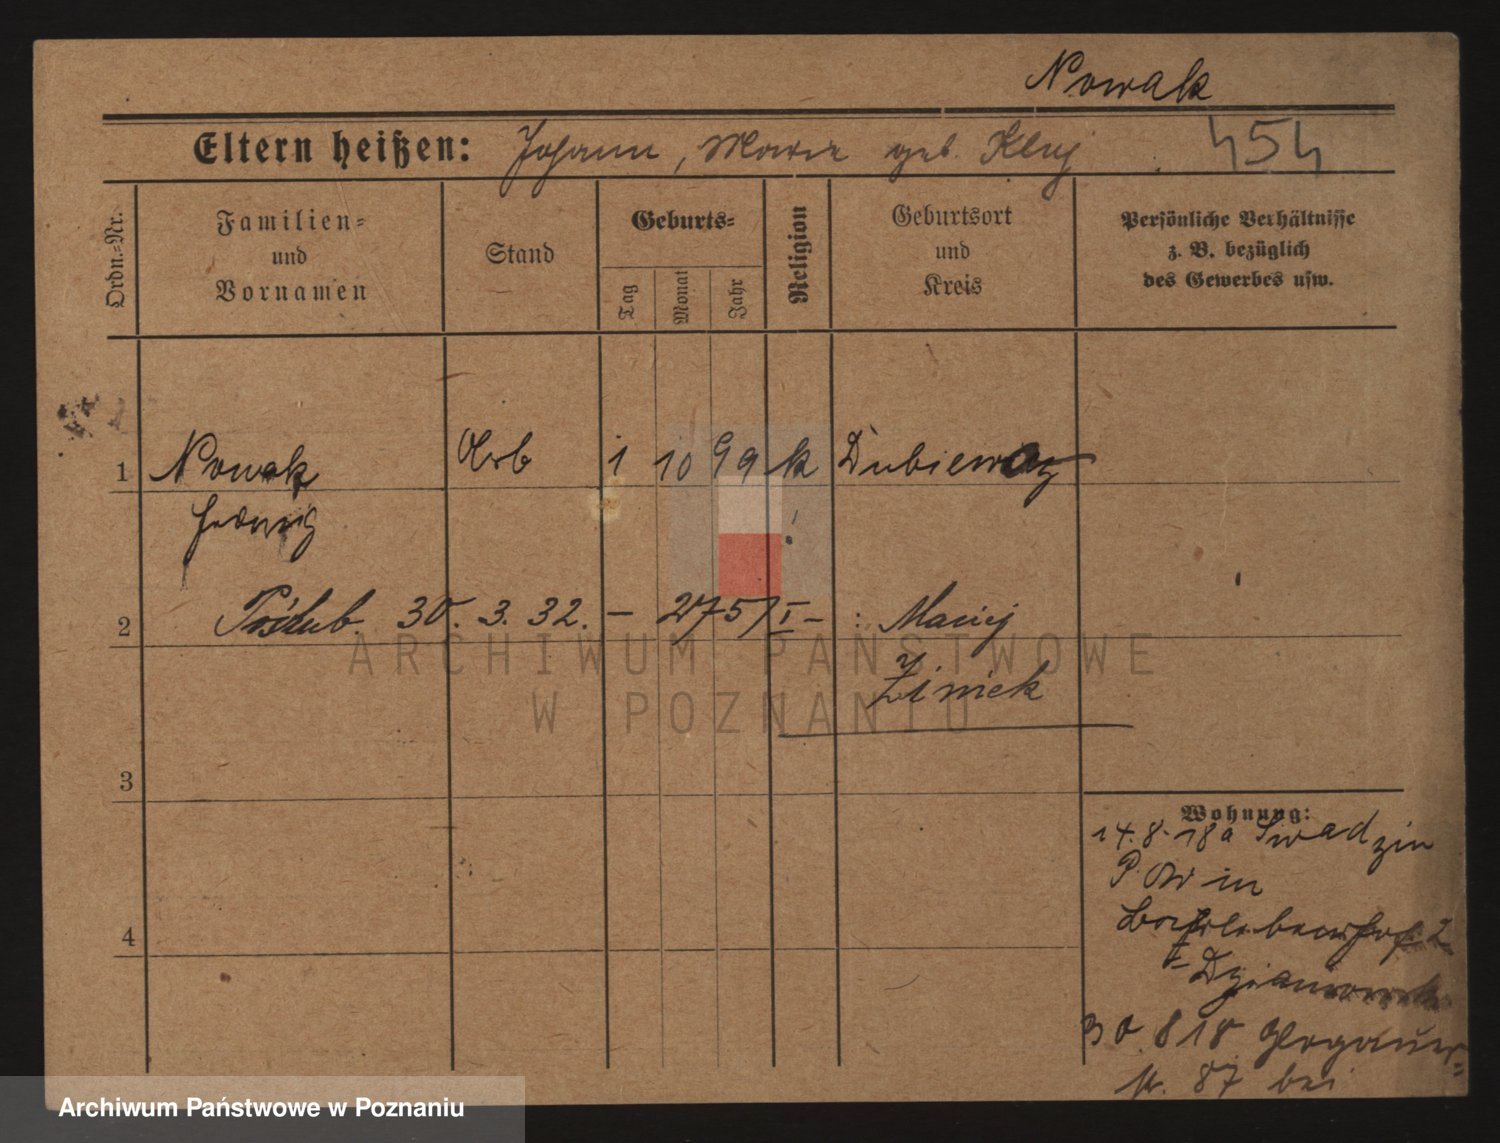 Nowak
Eltern heißen: Johann, Marie geb. Kluj 454
Ordn.=Nr.
Familien=
und
Vornamen
Stand
Geburts=
Tag
Monat
Jahr
Religion
Geburtsort
und
Kreis
Persönliche Verhältnisse
z. B. bezüglich
des Gewerbes usw.
1 Nowak Arb 1 10 99 k
Hedwig
2 Poślub 30. 3. 32. — 275/I - : Maciej
ARCHIWUM PAŃSTWOWE
W POZNANIU
3
Wohnung:
14.8.18 a Swadzin
P. West in
2
4
30.8.18 Glogauer=
str. 87 bei
Archiwum Państwowe w Poznaniu